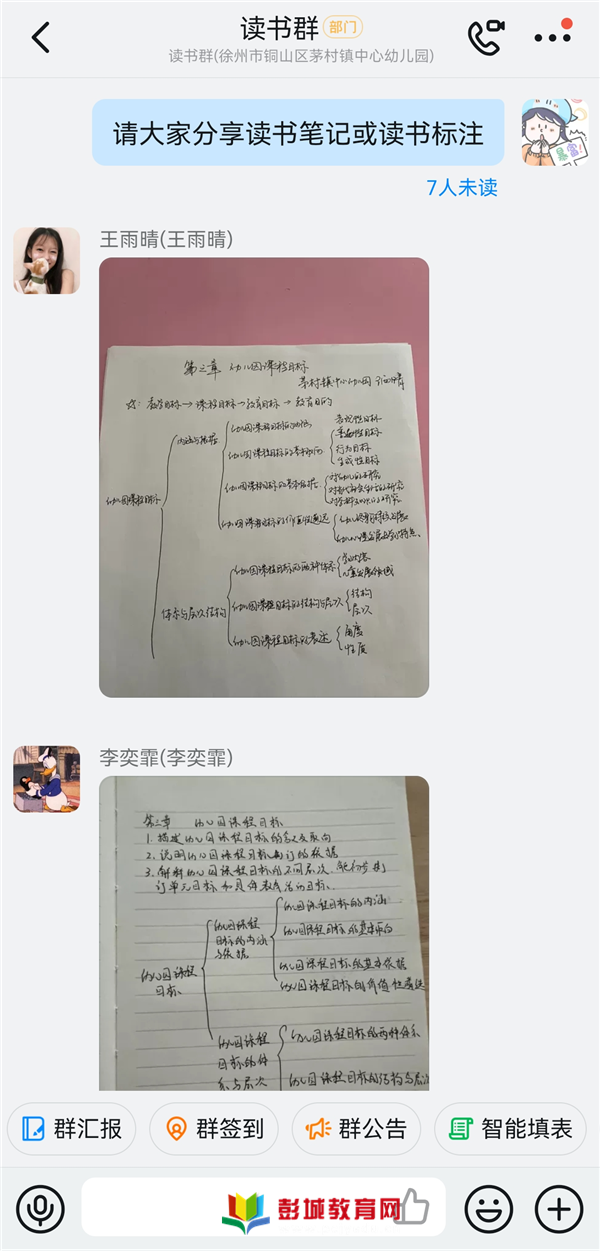 读书群 部门
读书群(徐州市铜山区茅村镇中心幼儿园)
请大家分享读书笔记或读书标注
7人未读
王雨晴(王雨晴)
第三章 幼儿园课程目标
茅村镇中心幼儿园 王雨晴
教学目标→课程目标→教育目标→教育目的
幼儿园课程目标
内涵与依据
幼儿园课程目标的内涵
幼儿园课程目标的基本取向
普遍性目标
行为目标
生成性目标
幼儿园课程目标的基本依据
幼儿园课程目标的价值性遴选
体系与层次结构
幼儿园课程目标的两种体系
幼儿园课程目标的结构与层次
结构
层次
幼儿园课程目标的表述
角度
李奕霏(李奕霏)
第三章 幼儿园课程目标
1.描述幼儿园课程目标的含义及取向
2.说明幼儿园课程目标制订的依据
3.解释幼儿园课程目标的不同层次,能初步制
订单元目标和具体教育活动目标。
幼儿园课程
目标
幼儿园课程
目标的内涵
与依据
幼儿园课程目标的内涵
幼儿园课程目标的基本取向
幼儿园课程目标的基本依据
幼儿园课程目标的价值性遴选
幼儿园课程
目标的体
系与层次
幼儿园课程目标的两种体系
幼儿园课程目标的结构与层次
群汇报
群签到
群公告
智能填表
彭城教育网